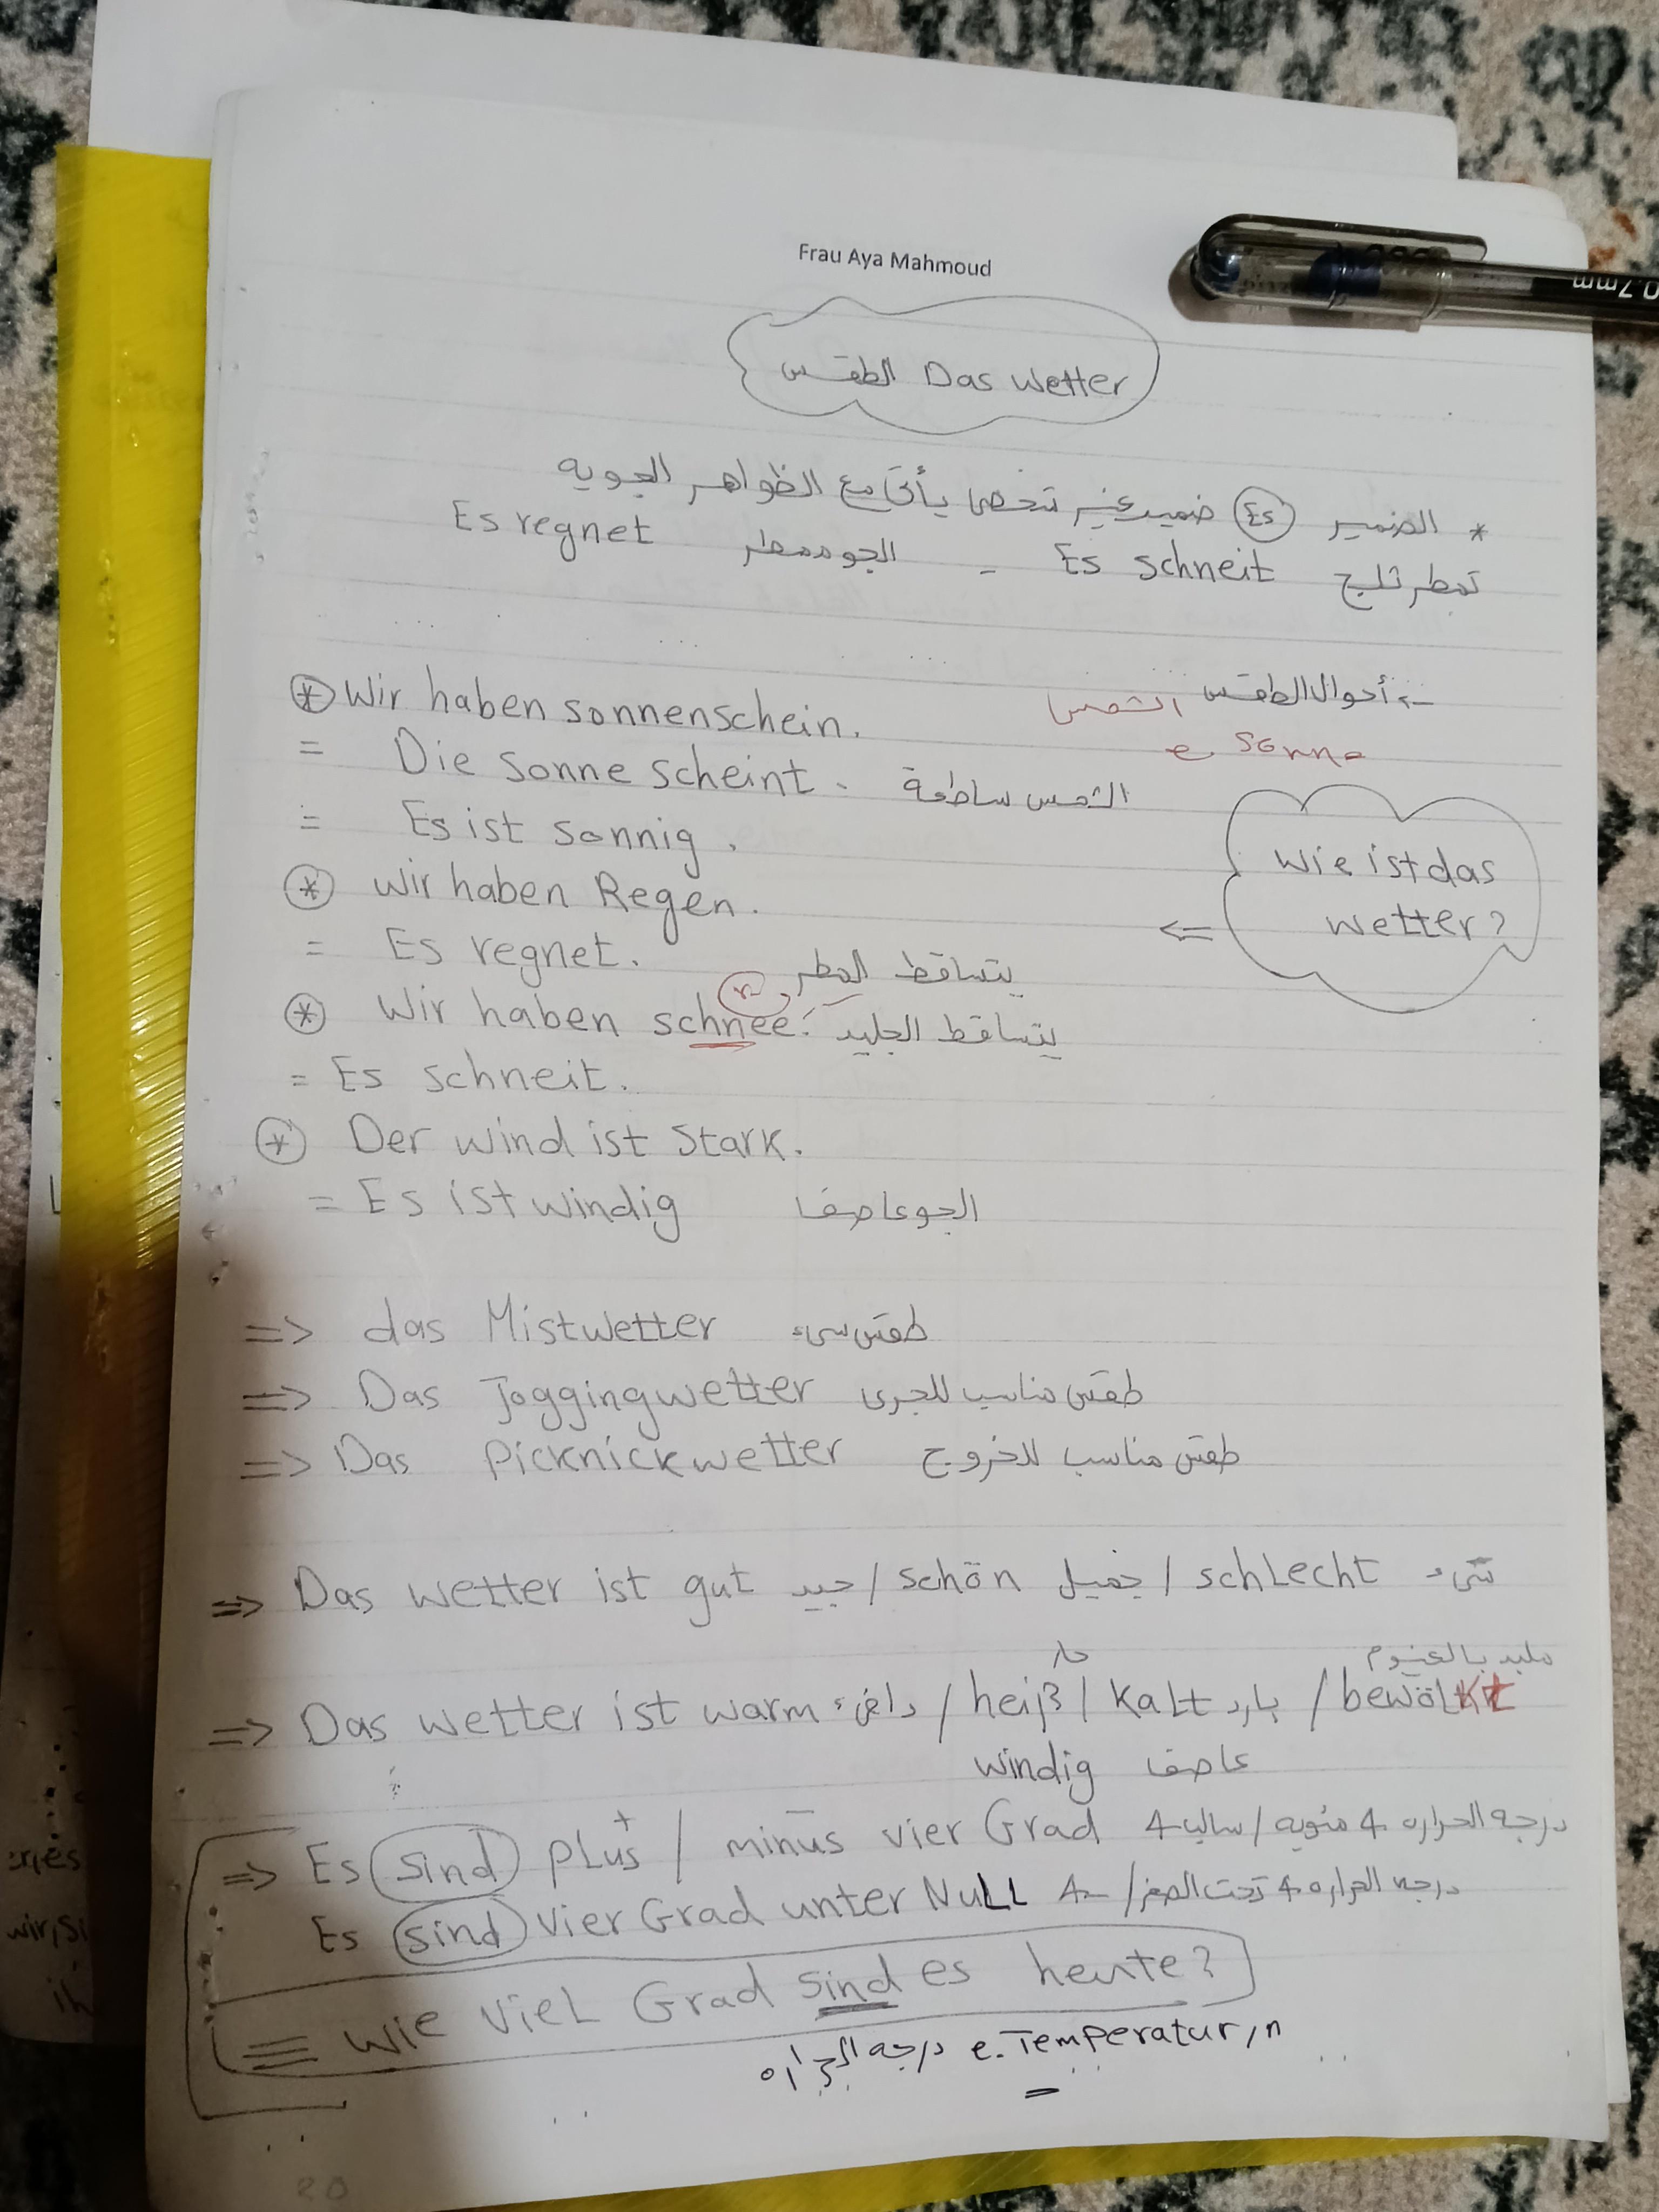 Frau Aya Mahmoud
0.7mm
الطقس Das Wetter
* الضمير (Es) ضمير غير شخصى يأتى مع الظواهر الجويه
تمطر ثلج Es schneit - الجو ممطر Es regnet
← أحوال الطقس
الشمس
e. Sonne
Wie ist das
wetter?
⇐
* Wir haben sonnenschein.
= Die Sonne scheint. الشمس ساطعة
= Es ist sonnig.
* Wir haben Regen.
= Es regnet. يتساقط المطر
* Wir haben schnee. يتساقط الجليد
= Es schneit.
* Der wind ist stark.
= Es ist windig الجو عاصف
=> das Mistwetter طقس سىء
=> Das Joggingwetter طقس مناسب للجرى
=> Das Picknickwetter طقس مناسب للخروج
=> Das wetter ist gut جيد / schön جميل / schlecht سىء
حار ملبد بالغيوم
=> Das wetter ist warm دافىء / heiß / Kalt بارد / bewölkt
windig عاصف
+ −
=> Es sind plus / minus vier Grad درجه الحراره 4 مئويه / سالب 4
Es sind vier Grad unter Null درجه الحراره 4 تحت الصفر / -4
= wie viel Grad sind es heute?
درجه الحراره e. Temperatur, n
20